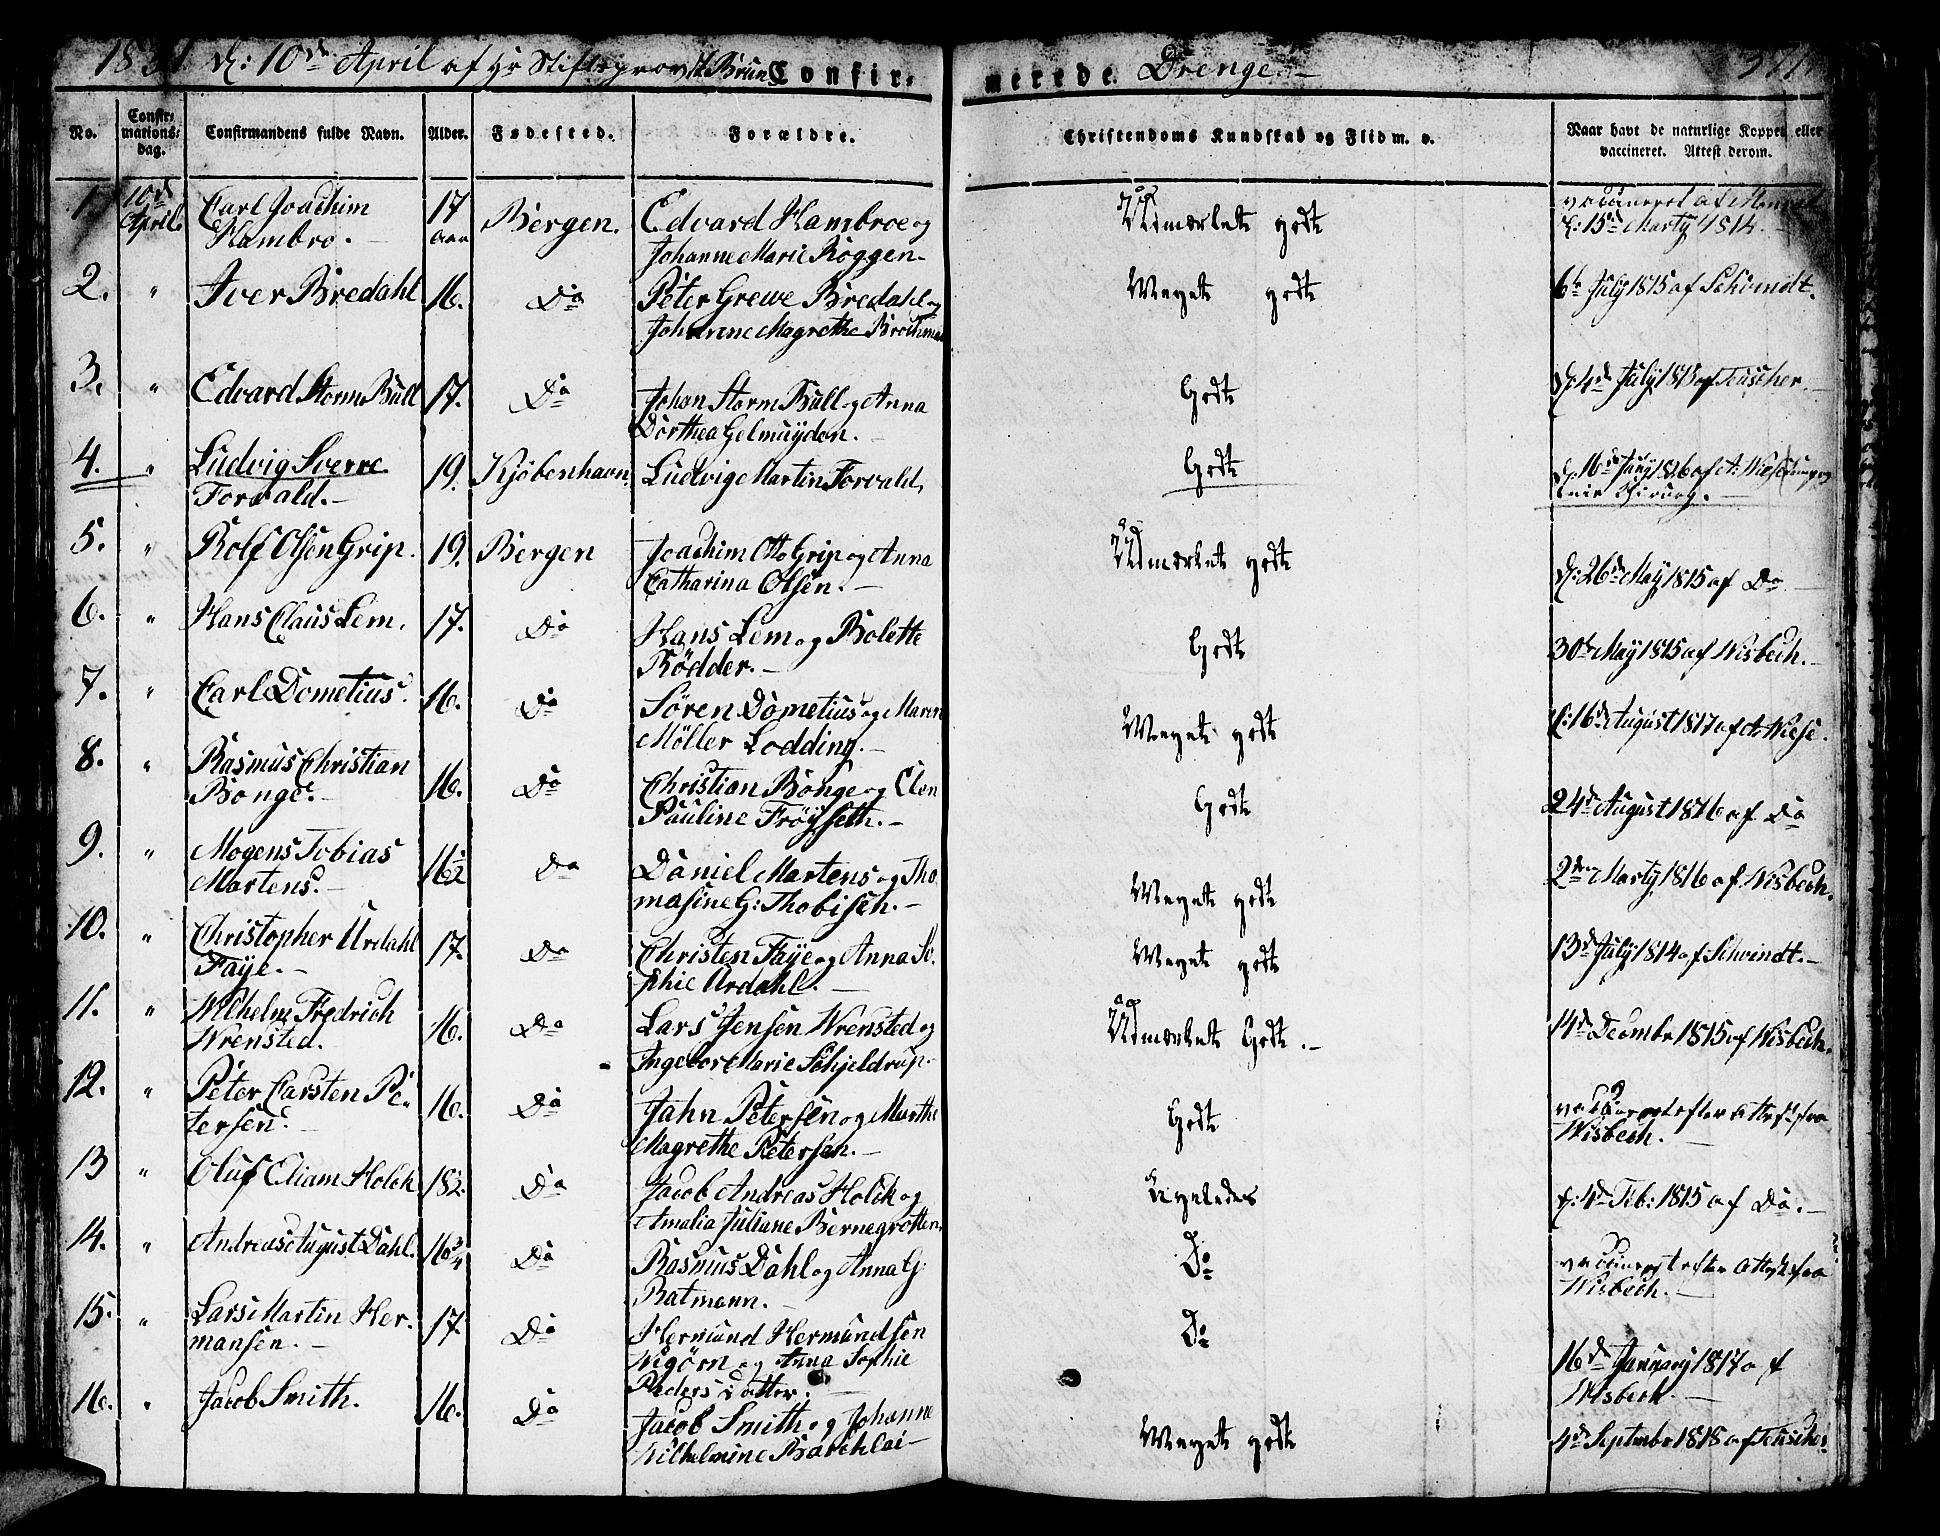 1831. d: 10de April af Hr Stiftsprovst Brun Confir-
merede Drenge.
No.
Confir-
mations-
dag.
Confirmandens fulde Navn.
Alder.
Fødested.
Forældre.
Christendoms Kundskab og Flid m. v.
Naar havt de naturlige Kopper eller
vaccineret. Attest derom.
1. 10de April. Carl Joachim
Hambro. 17 aar Bergen. Edvard Hambroe og
Johanne Marie Roggen. Udmærket godt vaccineret af
d: 15de Marty 1814.
2. " Iver Bredahl 16. Do Peter Grewe Bredahl og
Johanne Magrethe Meget godt 6te July 1815 af Schvindt.
3. " Edvard Storm Bull 17. Do Johan Storm Bull og Anna
Dorthea Gelmuyden. Godt d: 4de July 1813 af Teuscher.
4. " Ludvig Sverre
Forvald. 19. Kjøbenhavn. Ludvig Martin Forvald, Godt d. 16de July 1816 af A: Wiese
5. " Rolf Olsen Grip. 19. Bergen Joachim Otto Grip og Anna
Catharina Olsen. Udmærket godt d: 26de May 1815 af Do
6. " Hans Claus Lem. 17. Do Hans Lem og Bolette
Rödder. Godt 30te May 1815 af Wisbech.
7. " Carl Dometius. 16. Do Sören Dometius og Maren
Möller Lodding. Meget godt d: 16de August 1817 af A: Wiese.
8. " Rasmus Christian
Bonge. 16. Do Christian Bonge og Elen
Pauline Fröyseth. Godt 24de August 1816 af Do
9. " Mogens Tobias
Martens. 16 1/2 Do Daniel Martens og Tho-
masine G: Thobisen. Meget godt 2den Marty 1816 af Wisbech.
10. " Christopher Urdahl
Faye. 17. Do Christen Faye og Anna So-
phie Urdahl. Meget godt 13de July 1814 af Schvindt.
11. " Wilhelm Fredrich
Wrensted. 16. Do Lars Jensen Wrensted og
Ingebor Marie Schjeldrup. Udmærket Godt. 14de Decembr 1815 af Wisbech.
12. " Peter Carsten Pe-
tersen. 16. Do Jahn Petersen og Marthe
Magrethe Petersen. Godt vaccineret efter Attest fra
Wisbech.
13 " Oluf Eliam Holck 18 1/2. Do Jacob Andreas Holck og
Amalia Juliane Bernegrotten. Ligeledes d. 4de Feb: 1815 af Do.
14. " Andreas August Dahl. 16 3/4 Do Rasmus Dahl og Anna G:
Ratmann. Do vaccineret efter Attest fra
Wisbech.
15. " Lars Martin Her-
mansen. 17. Do Hermund Hermundsen
Wigörn og Anna Sophie
Pedersdatter. Do 16de January 1817 af
Wisbech.
16. " Jacob Smith. 16. Do Jacob Smith og Johanne
Wilhelmine Barchlai Meget godt 4de Septembr 1818 af Teuscher